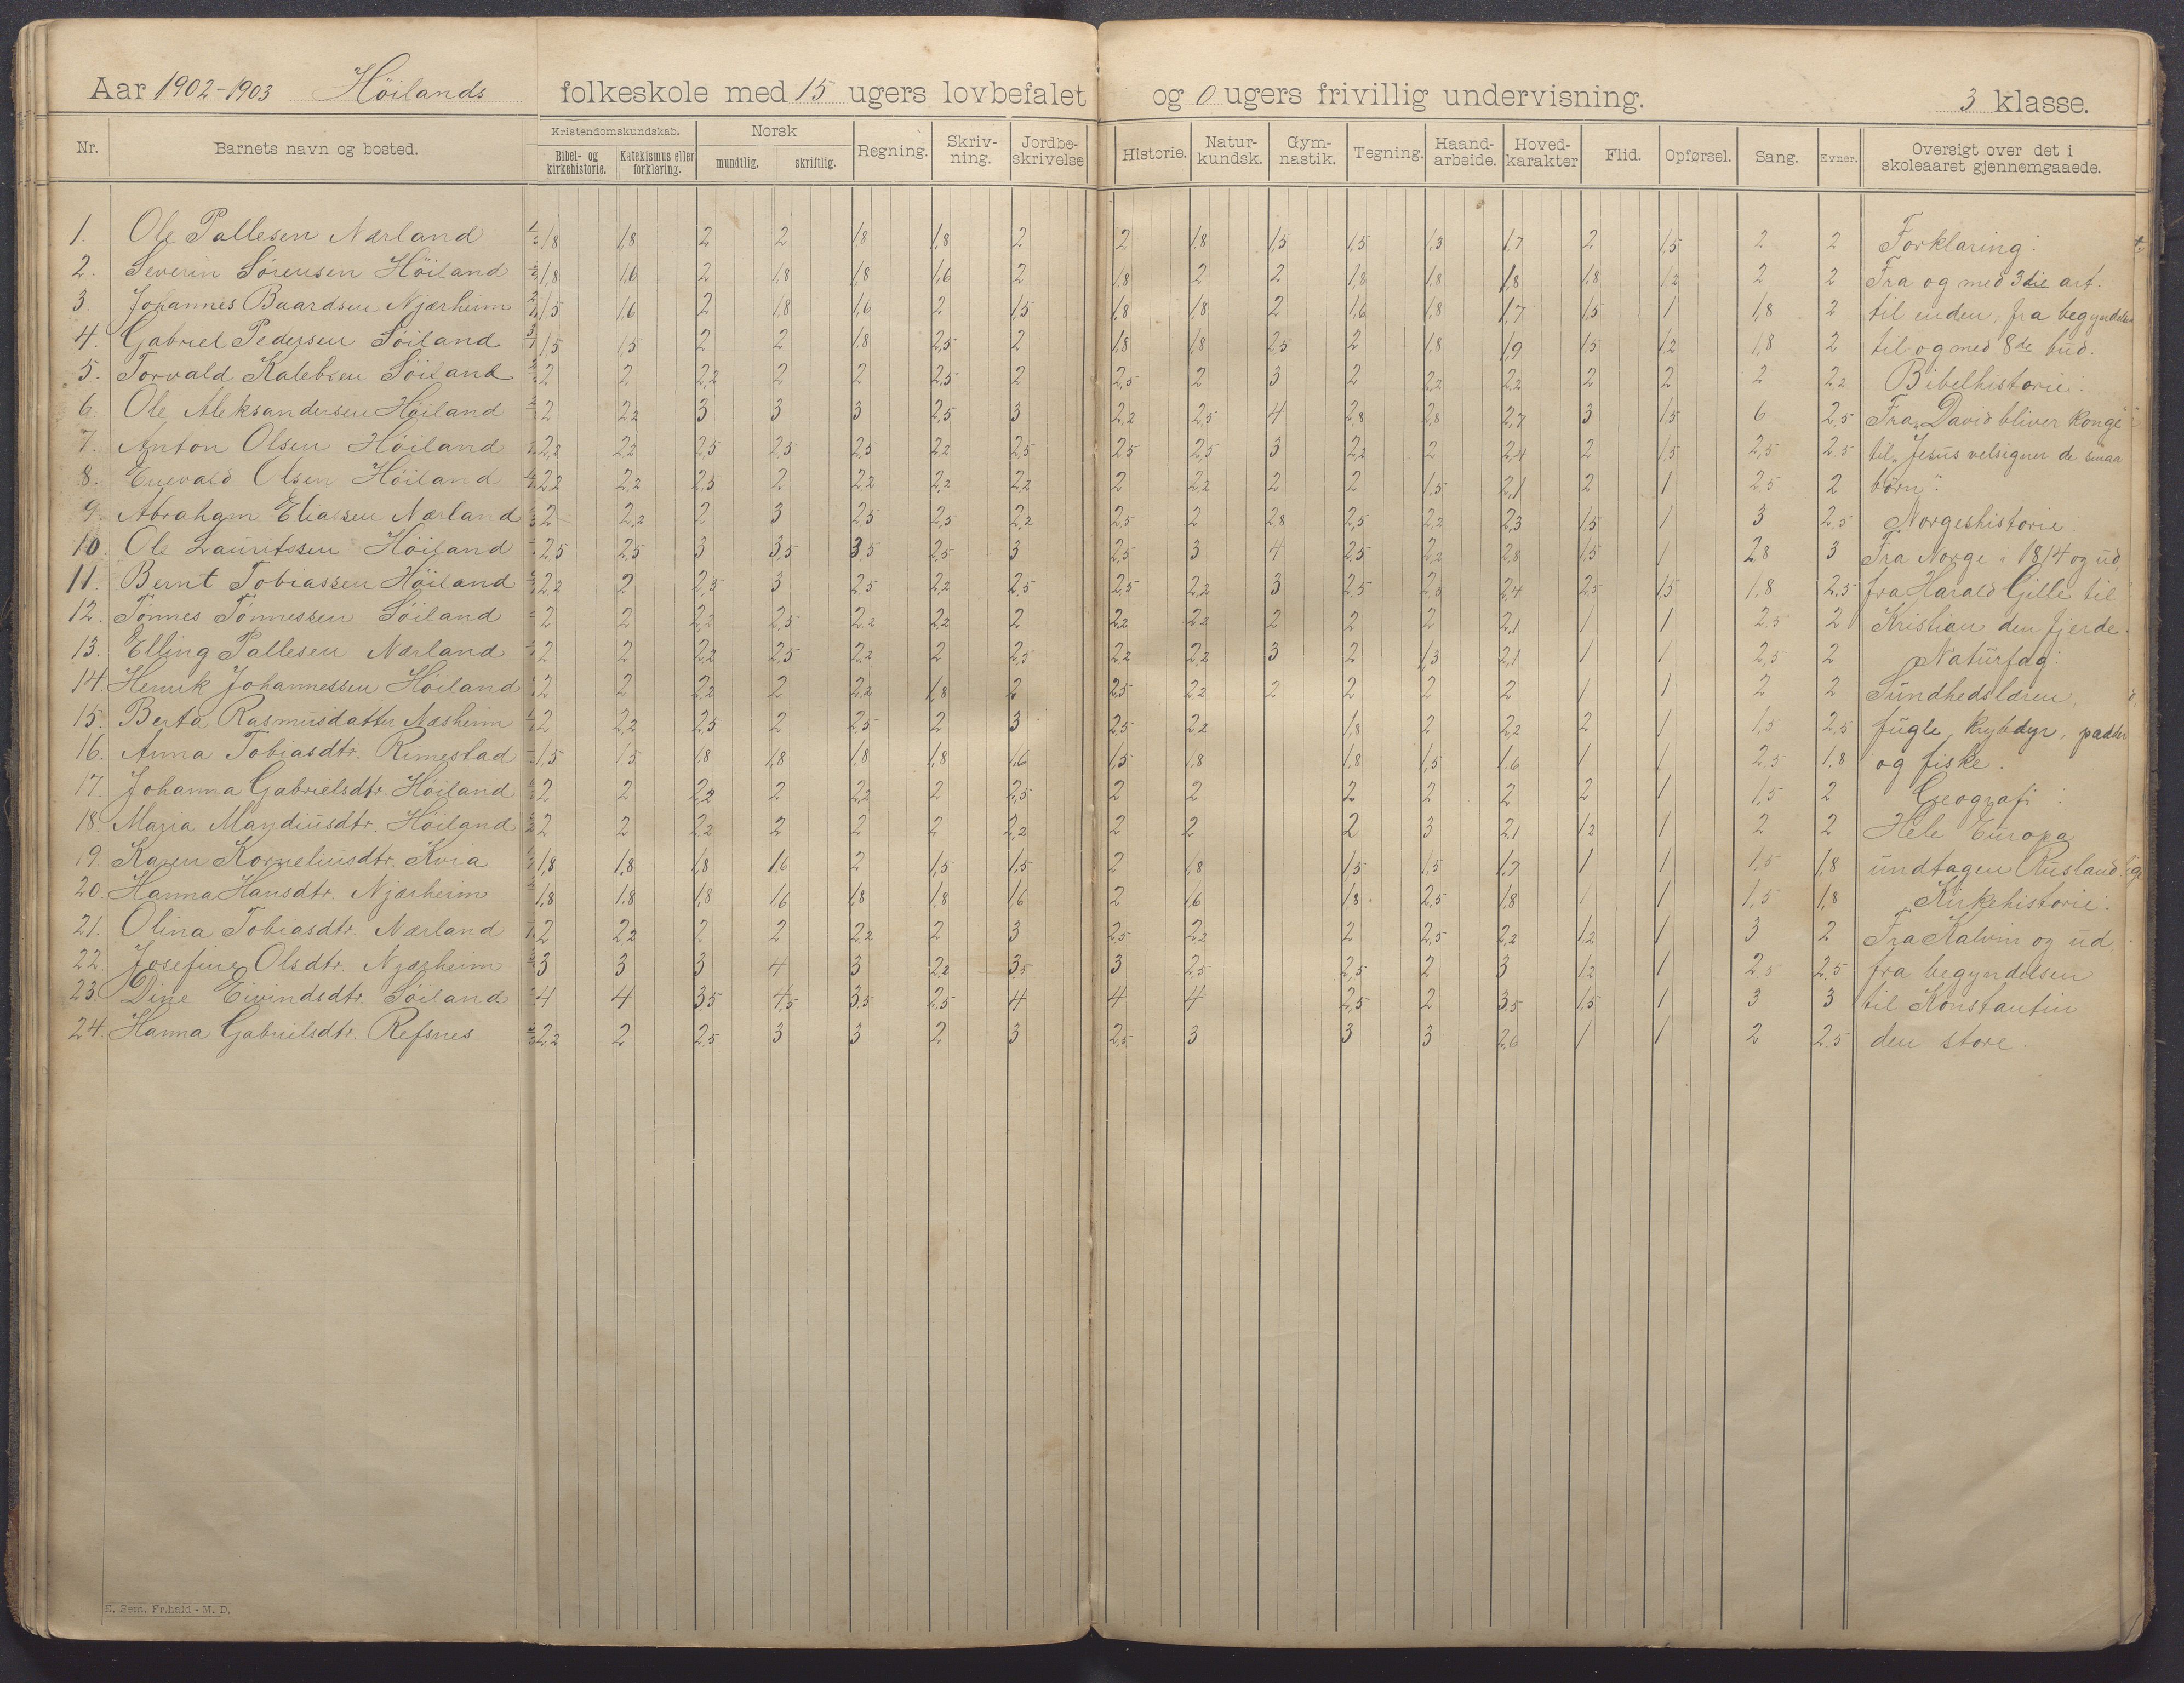 Aar 1902-1903 Höilands folkeskole med 15 ugers lovbefalet og 0 ugers frivillig undervisning. 3 klasse.
Nr. Barnets navn og bosted. Kristendomskundskab. Bibel- og kirkehistorie. Katekismus eller forklaring. Norsk mundtlig. skriftlig. Regning. Skriv-ning. Jordbe-skrivelse Historie. Natur-kundsk. Gym-nastik. Tegning. Haand-arbeide. Hoved-karakter Flid. Opførsel. Sang. Evner. Oversigt over det i skoleaaret gjennemgaaede.
1. Ole Pallesen Nærland 1,8 1,8 2 2 1,8 1,8 2 2 1,8 1,5 1,5 1,3 1,7 2 1,5 2 2 Forklaring:
2. Severin Sörensen Höiland 1,8 1,6 2 1,8 1,8 1,6 2 1,8 2 2 1,8 1,8 1,8 1,8 1,2 2 2 Fra og med 3die art.
3. Johannes Baardsen Njærheim 1,5 1,6 2 1,8 1,6 2 1,5 1,8 1,8 2 1,6 1,8 1,7 1,5 1 1,8 2 til enden, fra begyndelsen
4. Gabriel Pedersen Söiland 1,5 1,5 2 2 1,8 2,5 2 1,8 1,8 2,5 2 1,8 1,9 1,5 1,2 1,8 2 til og med 8de bud.
5. Torvald Kalebsen Söiland 2 2 2,2 2 2 2,5 2 2,5 2 3 2 2,2 2,2 2 2 2 2,2 Bibelhistorie:
6. Ole Aleksandersen Höiland 2 2,2 3 3 3 2,5 3 2,2 2,5 4 2,8 2,8 2,7 3 1,5 6 2,5 Fra "David bliver konge"
7. Anton Olsen Höiland 2,2 2,2 2,5 2,5 2,5 2,2 2,5 2,5 2,5 3 2,2 2 2,4 2 1,5 2,5 2,5 til "Jesus velsigner de smaa
8. Enevald Olsen Höiland 2,2 2,2 2,5 2 2,2 2,2 2,2 2 2,2 2 2 1,5 2,1 2 1 2,5 2 börn".
9. Abraham Eliassen Nærland 2 2,2 2 3 2,5 2,5 2,2 2,5 2 2,8 2,5 2,2 2,3 1,5 1 3 2,5 Norgeshistorie:
10. Ole Lauritssen Höiland 2,5 2,5 3 3,5 3,5 2,5 3 2,5 3 4 2,5 2,2 2,8 1,5 1 2,8 3 Fra Norge i 1814 og ud,
11. Bernt Tobiassen Höiland 2,2 2 2,5 3 2,5 2,2 2,5 2,5 2,2 3 2,5 2,5 2,4 2,5 1,5 1,8 2,5 fra Harald Gille til
12. Tönnes Tönnessen Söiland 2 2 2,2 2,5 2,2 2,2 2 2,2 2,2 2 2 2 2,1 1 1 2,5 2 Kristian den fjerde.
13. Elling Pallesen Nærland 2 2 2,2 2,5 2,2 2 2,5 2,2 2,2 3 2 1,3 2,1 1 1 2,5 2 Naturfag:
14. Henrik Johannessen Höiland 2 2 2,2 2 2,2 1,8 2 2,5 2,2 2 2 2 2 1 1 2 2 Sundhedslæren,
15. Berta Rasmusdatter Næsheim 2 2,2 2,5 2 2,5 2 3 2,5 2,2 1,8 2 2,2 2 1 1,5 2,5 fugle, krybdyr, padder
16. Anna Tobiasdtr. Rimestad 1,5 1,5 1,8 1,8 1,8 1,8 1,6 1,5 1,8 1,8 1,5 1,6 1 1 2,5 1,8 og fiske.
17. Johanna Gabrielsdtr. Höiland 2 2 2,2 2 2,2 2 2,5 2 2 2 2 2 2 1 1,5 2 Geografi:
18. Maria Mandiusdtr. Höiland 2 2 2,2 2 2 2 2,2 2 2 2 3 2,1 1,2 1 2 2 Hele Europa
19. Karen Korneliusdtr. Kvia 1,8 1,8 1,8 1,6 2 1,5 1,5 2 1,8 1,5 1,5 1,7 1 1 1,5 1,8 undtagen Rusland
20. Hanna Hansdtr. Njærheim 1,8 1,8 1,8 1,6 1,8 1,8 1,6 2 1,6 1,8 2,5 1,8 1 1 1,5 1,8 Kirkehistorie:
21. Olina Tobiasdtr. Nærland 2 2,2 2 2 2,2 2 3 2,5 2,2 2 2,5 2,2 1,2 1 3 2 Fra Kalvin og ud
22. Josefine Olsdtr. Njærheim 3 3 3 4 3 2,2 3,5 3 2,5 2,5 2 3 1,2 1 2,5 2,5 fra begyndelsen
23. Dine Eivindsdtr. Söiland 4 4 3,5 4,5 3,5 2,5 4 4 4 2,5 2 3,5 1,5 1 3 3 til Konstantin
24. Hanna Gabrielsdtr. Refsnes 2,2 2 2,5 3 3 2 3 2,5 3 3 3 2,6 1 1 2 2,5 den store.
E. Sem, Fr.hald - M. D.